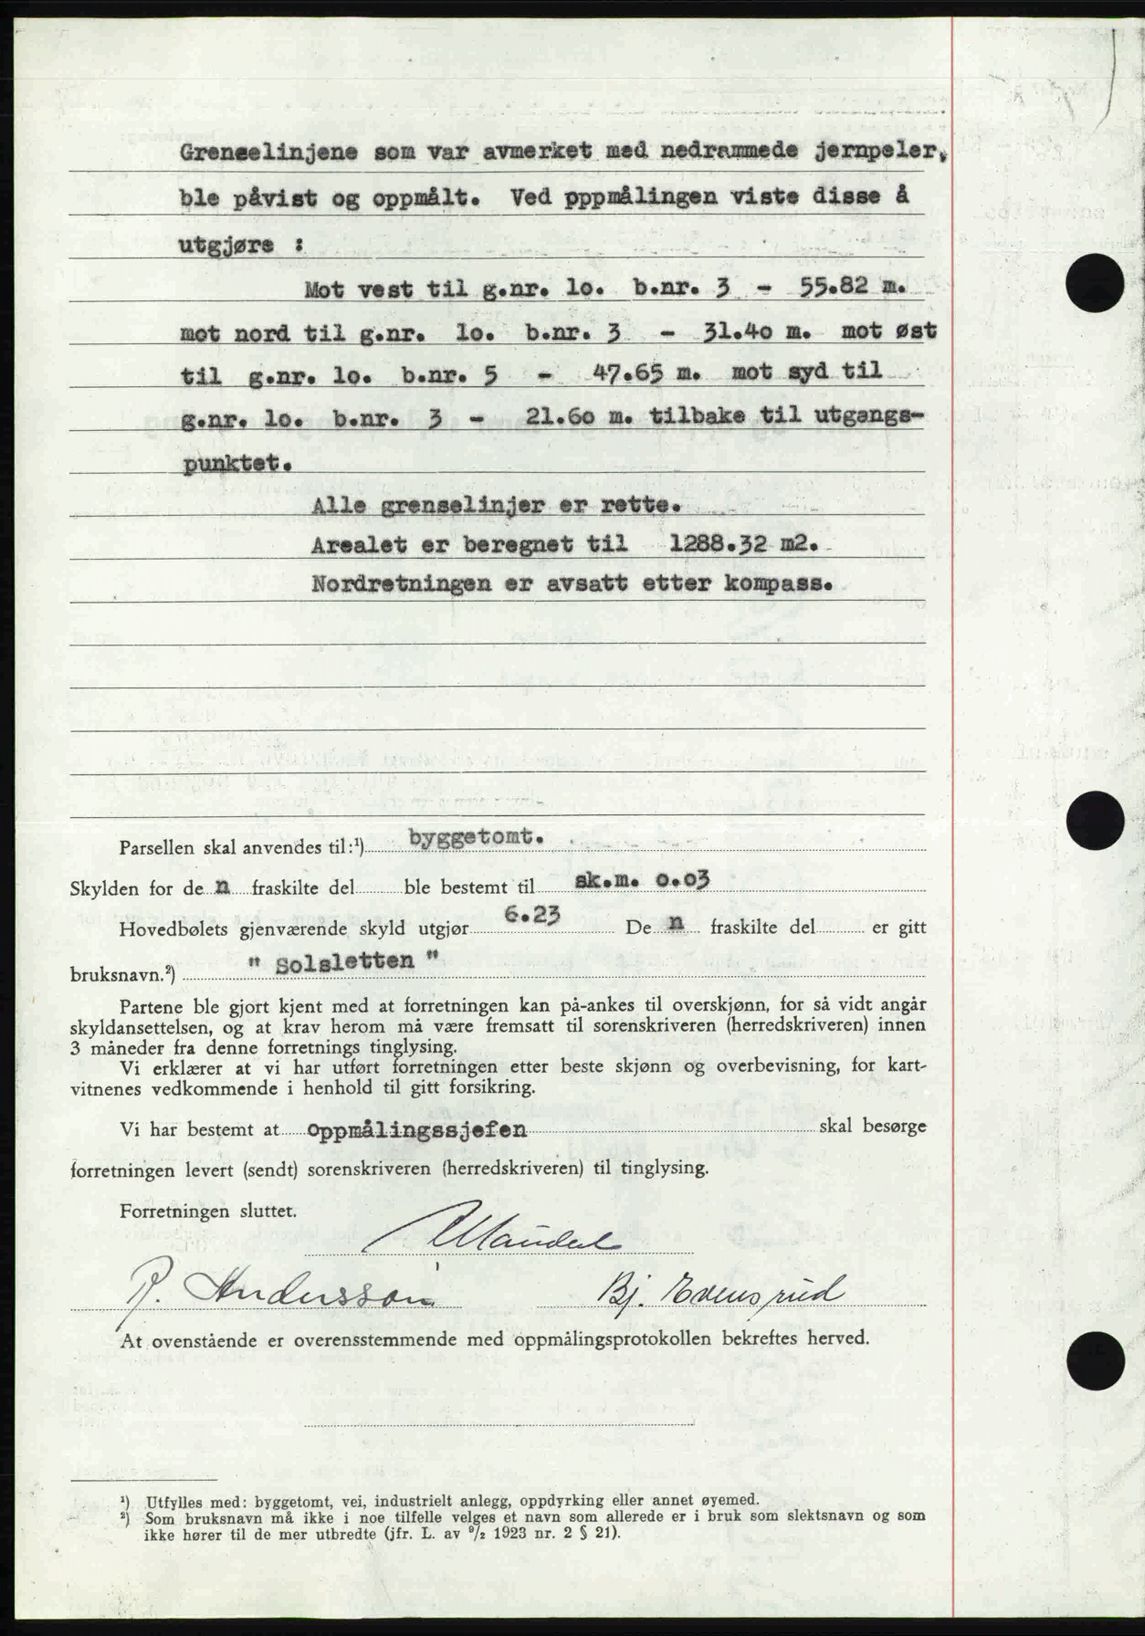 Grenselinjene som var avmerket med nedrammede jernpeler,
ble påvist og oppmålt. Ved pppmålingen viste disse å
utgjøre :
Mot vest til g.nr. lo. b.nr. 3 - 55.82 m.
mot nord til g.nr. lo. b.nr. 3 - 31.4o m. mot øst
til g.nr. lo. b.nr. 5 - 47.65 m. mot syd til
g.nr. lo. b.nr. 3 - 21.6o m. tilbake til utgangs-
punktet.
Alle grenselinjer er rette.
Arealet er beregnet til 1288.32 m2.
Nordretningen er avsatt etter kompass.
Parsellen skal anvendes til:¹) byggetomt.
Skylden for de n fraskilte del ble bestemt til sk.m. o.o3
Hovedbølets gjenværende skyld utgjør 6.23 De n fraskilte del er gitt
bruksnavn.²) " Solsletten "
Partene ble gjort kjent med at forretningen kan på-ankes til overskjønn, for så vidt angår
skyldansettelsen, og at krav herom må være fremsatt til sorenskriveren (herredskriveren) innen
3 måneder fra denne forretnings tinglysing.
Vi erklærer at vi har utført forretningen etter beste skjønn og overbevisning, for kart-
vitnenes vedkommende i henhold til gitt forsikring.
Vi har bestemt at Oppmålingssjefen skal besørge
forretningen levert (sendt) sorenskriveren (herredskriveren) til tinglysing.
Forretningen sluttet.
R. Andersson Bj. Evensrud
At ovenstående er overensstemmende med oppmålingsprotokollen bekreftes herved.
¹) Utfylles med: byggetomt, vei, industrielt anlegg, oppdyrking eller annet øyemed.
²) Som bruksnavn må ikke i noe tilfelle velges et navn som allerede er i bruk som slektsnavn og som
ikke hører til de mer utbredte (jfr. L. av ⁹/₂ 1923 nr. 2 § 21).